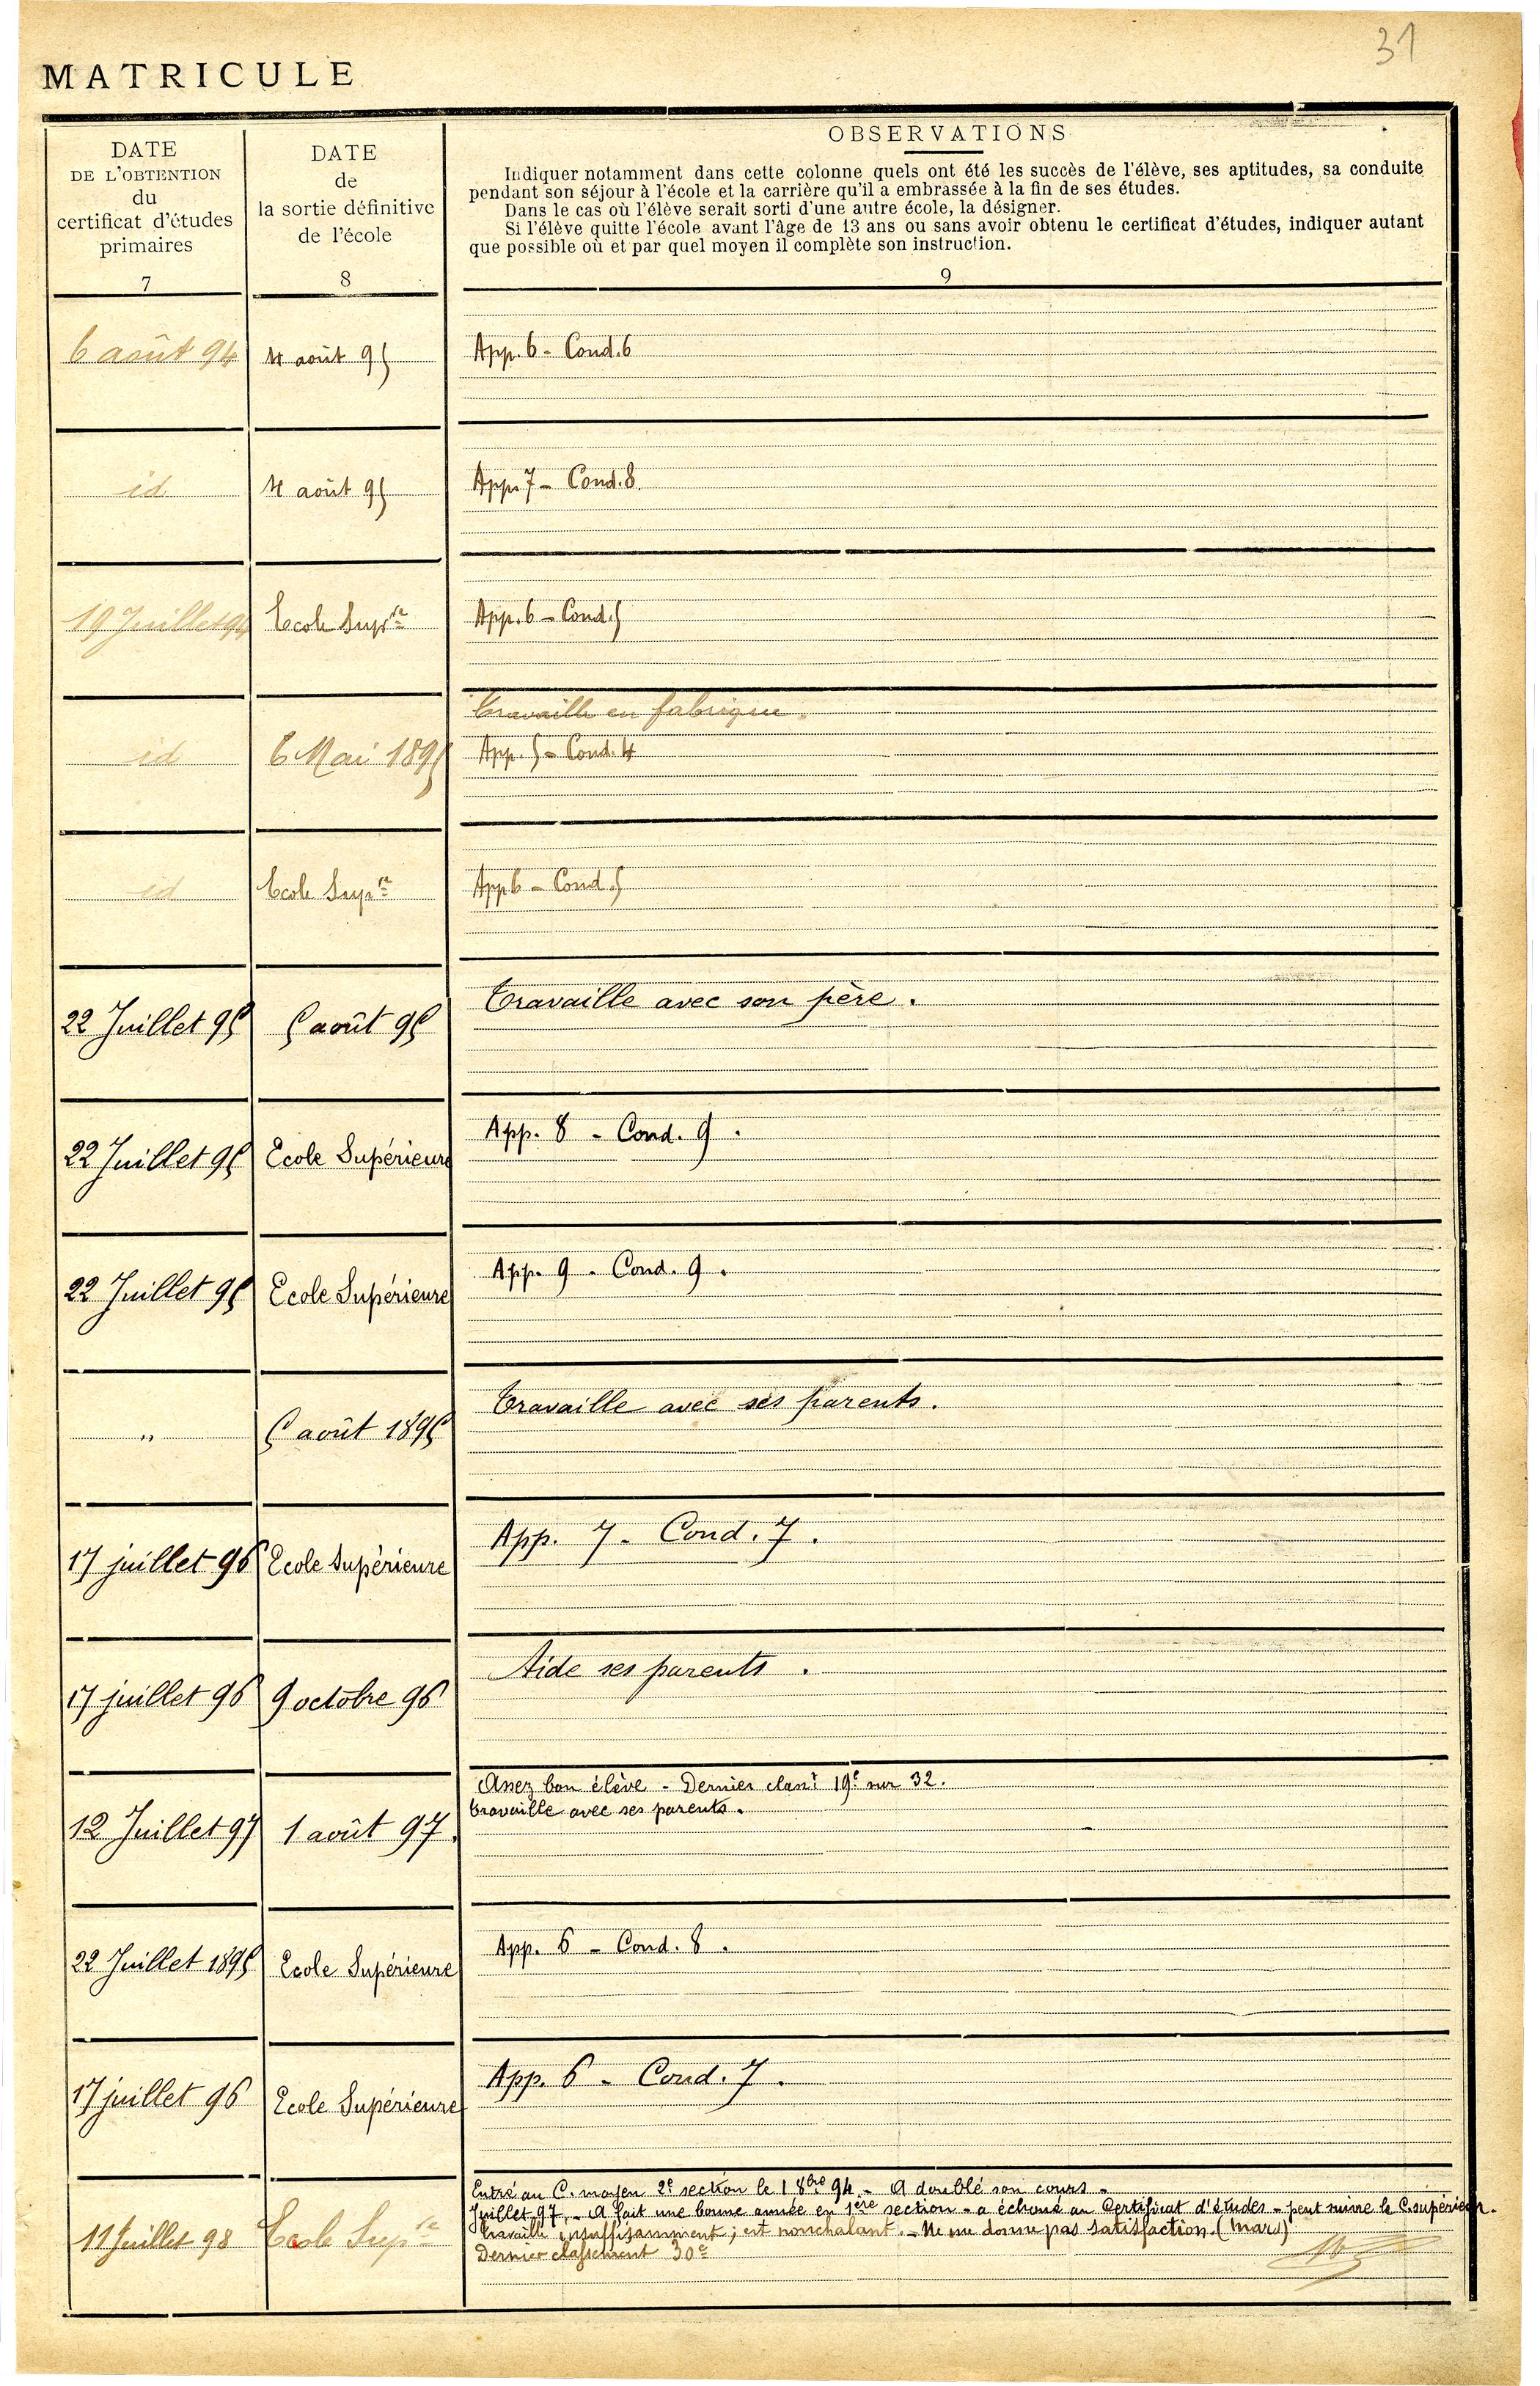 31
MATRICULE
DATE
DE L'OBTENTION
du
certificat d'études
primaires
7
DATE
de
la sortie définitive
de l'école
8
OBSERVATIONS
Indiquer notamment dans cette colonne quels ont été les succès de l'élève, ses aptitudes, sa conduite
pendant son séjour à l'école et la carrière qu'il a embrassée à la fin de ses études.
Dans le cas où l'élève serait sorti d'une autre école, la désigner.
Si l'élève quitte l'école avant l'âge de 13 ans ou sans avoir obtenu le certificat d'études, indiquer autant
que possible où et par quel moyen il complète son instruction.
9
6 août 94 4 août 95 App. 6 - Cond. 6
id 4 août 95 App. 7 - Cond. 8.
19 Juillet 94 Ecole Supre App. 6 - Cond. 5
Travaille en fabrique.
id 6 Mai 1895 App. 5 - Cond. 4
id Ecole Supre App 6 - Cond. 5
22 Juillet 95 5 août 95 Travaille avec son père.
22 Juillet 95 Ecole Supérieure App. 8 - Cond. 9.
22 Juillet 95 Ecole Supérieure App. 9 - Cond. 9.
" 5 août 1895 Travaille avec ses parents.
17 juillet 96 Ecole Supérieure App. 7 - Cond. 7.
17 juillet 96 9 octobre 96 Aide ses parents.
Assez bon élève - Dernier classt 19e sur 32.
Travaille avec ses parents.
12 Juillet 97 1 août 97.
22 Juillet 1895 Ecole Supérieure App. 6 - Cond. 8.
17 juillet 96 Ecole Supérieure App. 6 - Cond. 7.
Entré au C. moyen 2e section le 1 8bre 94. - A doublé son cours -
Juillet 97, - A fait une bonne année en 1ère section - a échoué au Certificat d'études - peut suivre le C. supérieur.
Travaille insuffisamment ; est nonchalant. - Ne me donne pas satisfaction. (Mars)
11 Juillet 98 Ecole Supre Dernier classement 30e